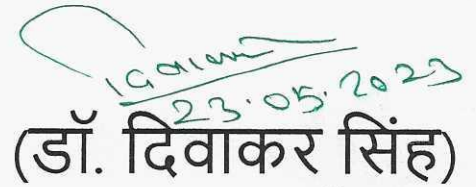 23.05.2023
(डॉ. दिवाकर सिंह)